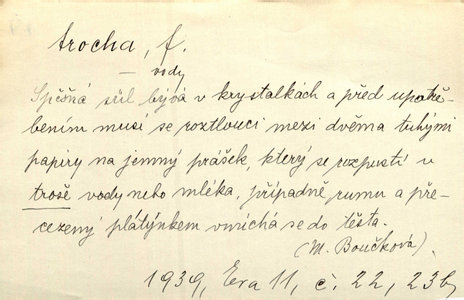 trocha, f.
— vody
Spěšná sůl bývá v krystalkách a před upotře-
bením musí se roztlouci mezi dvěma tuhými
papíry na jemný prášek, který se rozpustí v
troše vody nebo mléka, případně rumu a pře-
cezený plátýnkem vmíchá se do těsta.
(M. Boučková).
1939, Eva 11, č. 22, 23b